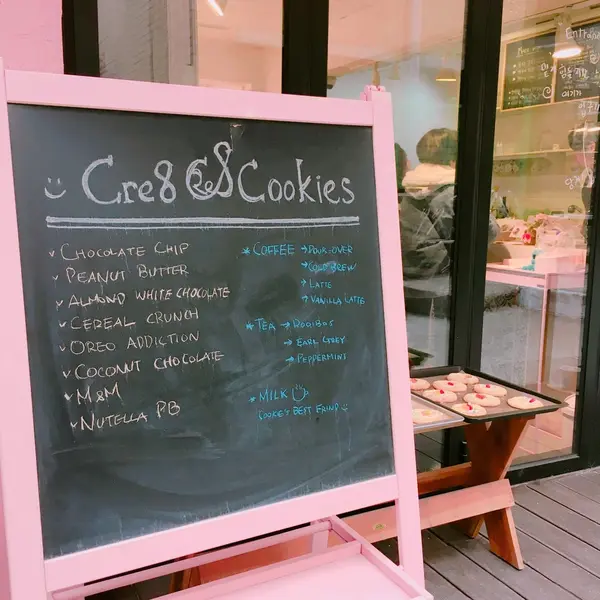 Cre8 Cookies
CHOCOLATE CHIP
PEANUT BUTTER
ALMOND WHITE CHOCOLATE
CEREAL CRUNCH
OREO ADDICTION
COCONUT CHOCOLATE
M&M
NUTELLA PB
* COFFEE → POUR-OVER
→ COLD BREW
→ LATTE
→ VANILLA LATTE
* TEA → ROOIBOS
→ EARL GREY
→ PEPPERMINT
* MILK
COOKIE'S BEST FRIEND
Entrance